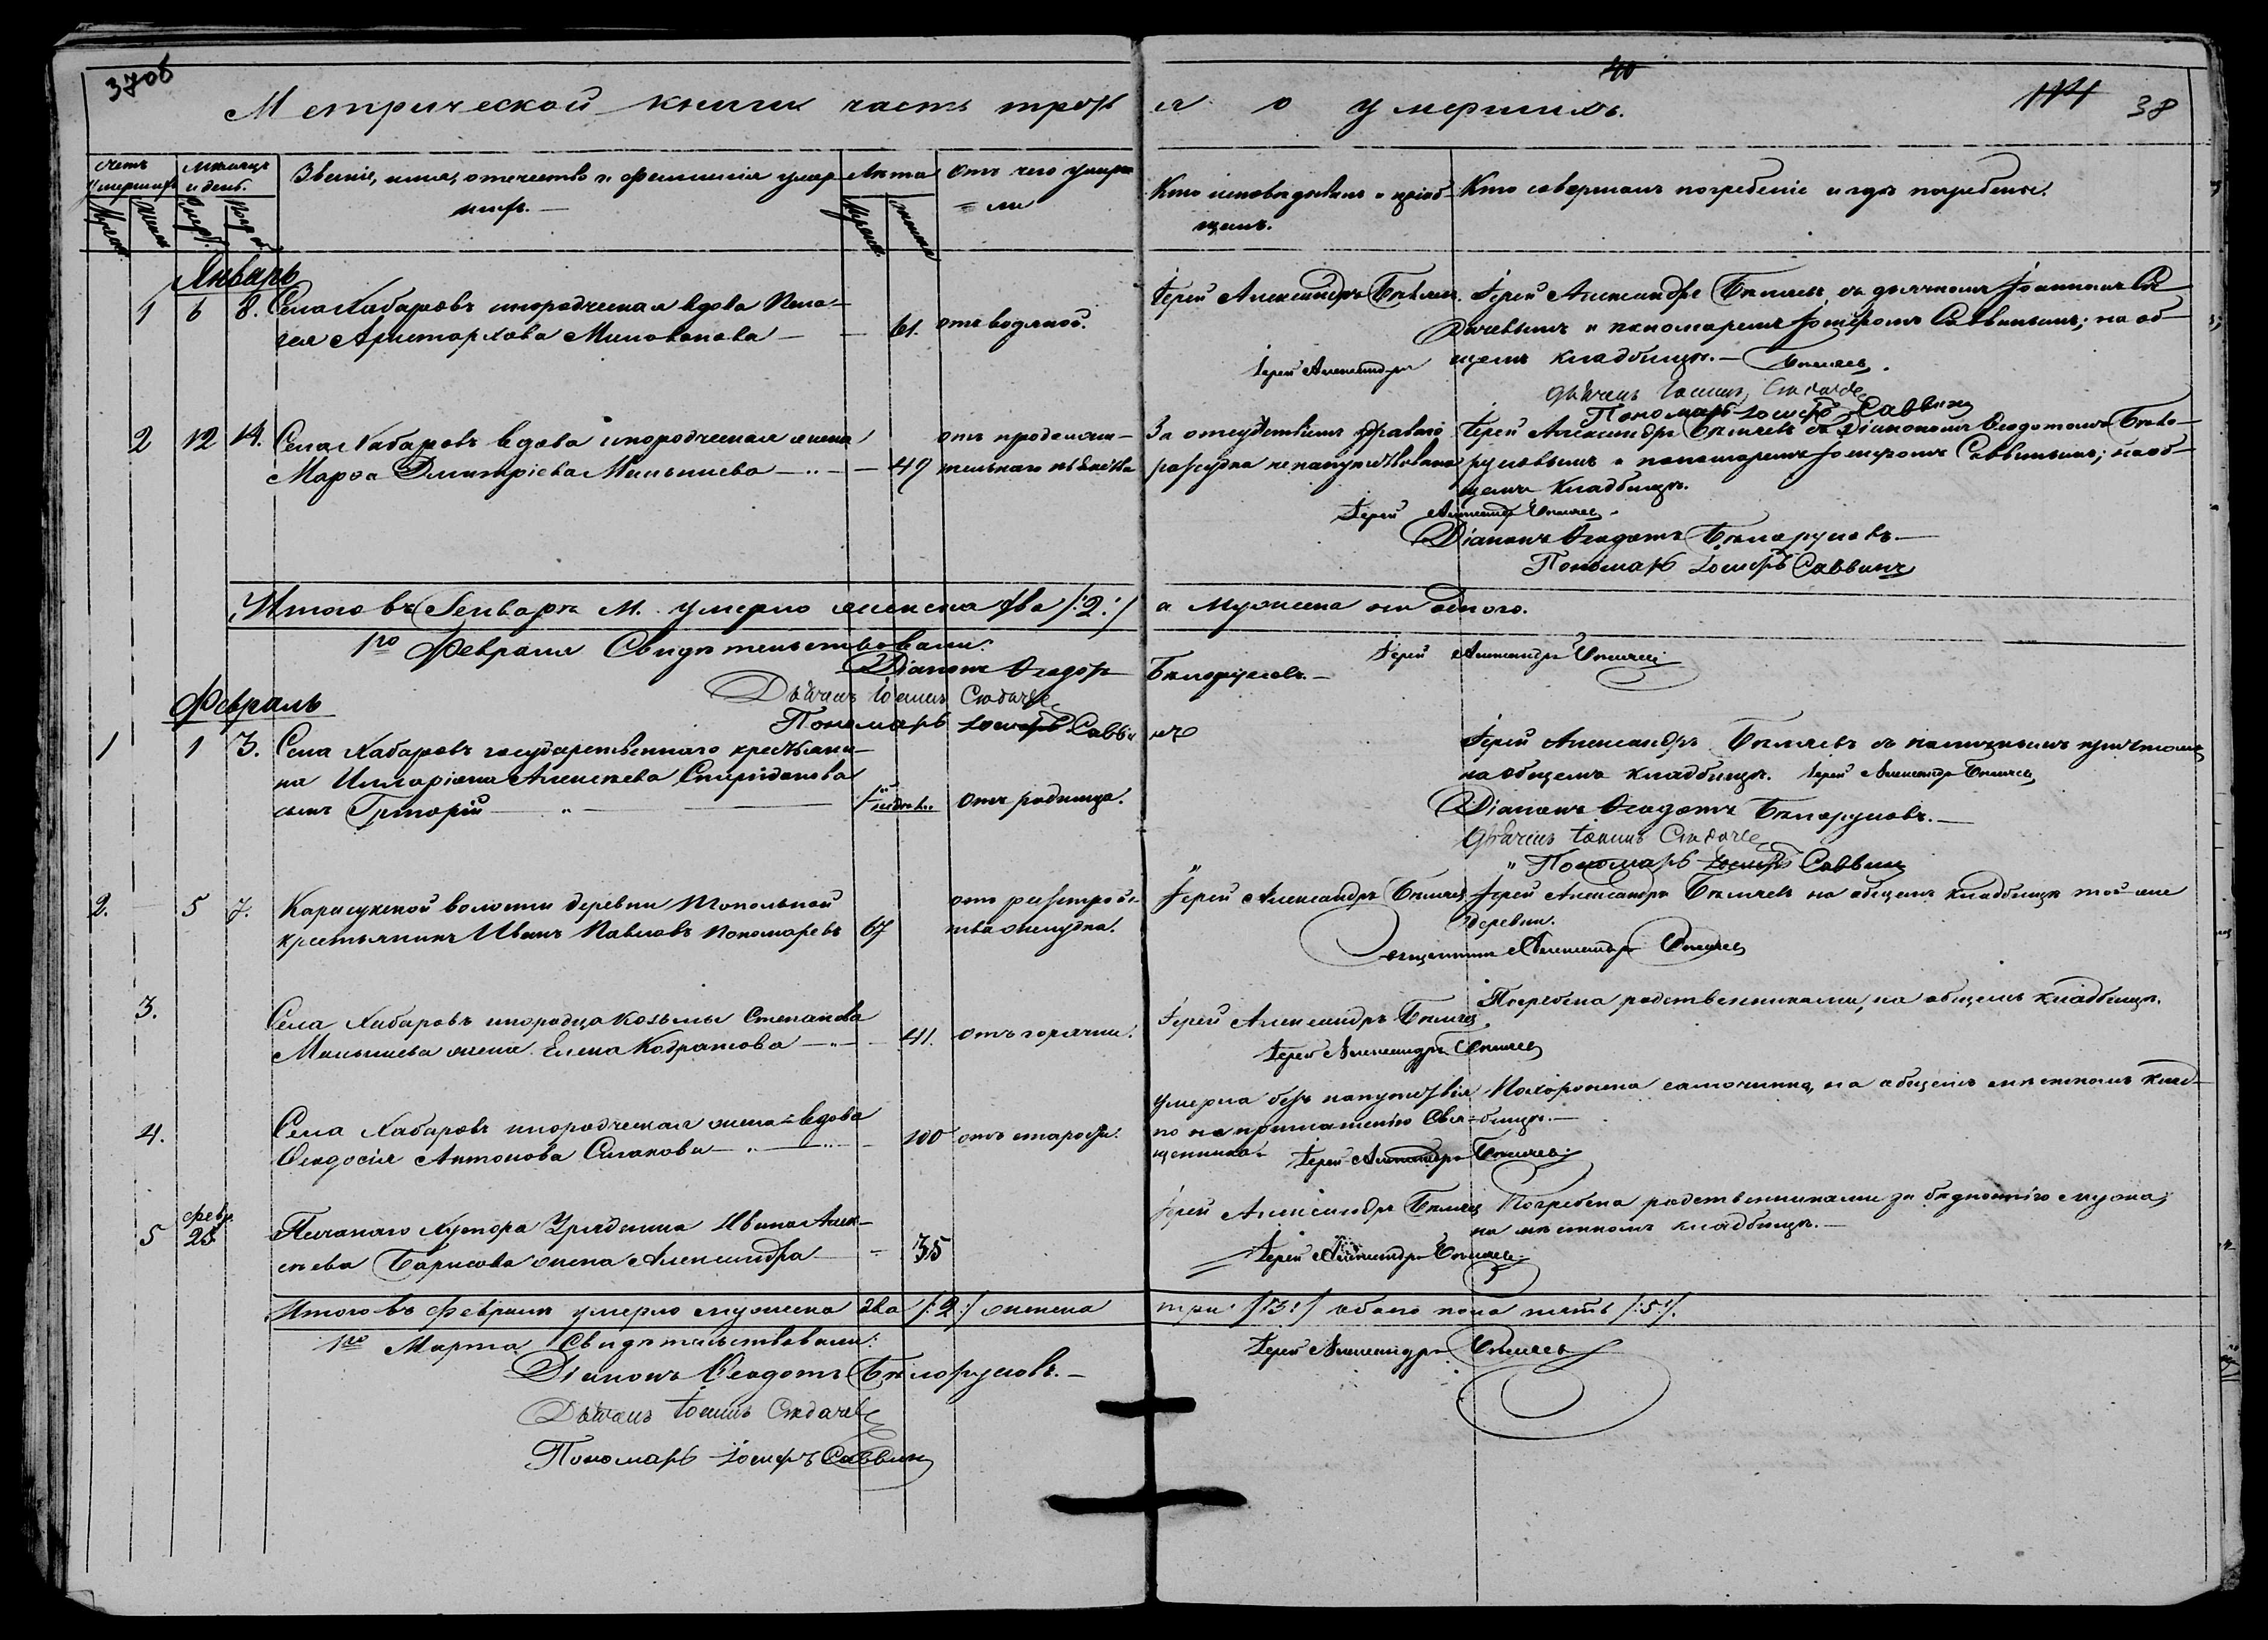 37об
40
114 38
Метрической книги часть треть я о умершихъ.
Счетъ умершихъ
Мѣсяцъ и день.
Званіе, имя, отечество и фамилія умер шихъ.
Лѣта
Отъ чего умер ли
Кто исповѣдывалъ и пріоб щалъ.
Кто совершалъ погребеніе и гдѣ погребены.
Январь
1 6 8. Села Хабаровъ инородческая вдова Пела-
гея Аристархова Миловокова — — 61. отъ водяной.
Іерей Александръ Бѣляевъ.
Іерей Александръ Бѣляевъ съ дьячкомъ Іоанномъ Сѣ
дачевымъ и пономаремъ Іосифомъ Саввинымъ; на об-
щемъ кладбищѣ. —
Іерей Александръ Бѣляевъ.
Дьячекъ Іоаннъ Сѣдаче
Пономарь Іосифъ Саввинъ
2 12 14. Села Хабаровъ вдова инородческая жена
Марѳа Дмитріева Милышева — — 49
отъ продолжи-
тельнаго
За отсутствіемъ здраваго
разсудка не напутствована
Іерей Александръ Бѣляевъ съ Діакономъ Ѳеодотомъ Бѣло-
русовымъ и пономаремъ Іосифомъ Саввинымъ; на об-
щемъ кладбищѣ.
Іерей Александръ Бѣляевъ.
Діаконъ Ѳеодотъ Бѣлорусовъ. —
Пономарь Іосифъ Саввинъ
Итого въ Генварѣ м. умерло женска два /:2:/ а мужеска ни одного.
1го Февраля Свидѣтельствовали:
Іерей Александръ Бѣляевъ
Діаконъ Ѳеодотъ Бѣлорусовъ. —
Дьячекъ Іоаннъ Сѣдаче
Пономарь Іосифъ Саввинъ
Февраль
1 1 3. Села Хабаровъ государственнаго крестьяни-
на Илларіона Алексѣева Спиридонова
сынъ Григорій — отъ родимца.
Іерей Александръ Бѣляевъ съ наличнымъ причтомъ
на общемъ кладбищѣ. Іерей Александръ Бѣляевъ
Діаконъ Ѳеодотъ Бѣлорусовъ. —
Дьячекъ Іоаннъ Сѣдаче
Пономарь Іосифъ Саввинъ
2. 5 7. Карасукской волости деревни Топольной
крестьянинъ Иванъ Павловъ Пономаревъ 67
отъ разстрой-
тва желудка.
Іерей Александръ Бѣляевъ
Іерей Александръ Бѣляевъ на общемъ кладбищѣ той же
деревни.
Священникъ Александръ Бѣляевъ
3. Села Хабаровъ инородца Козьмы Степанова
Милышева жена Елена Кодратова — 41. отъ горячки.
Іерей Александръ Бѣляевъ
Погребена родственниками, на общемъ кладбищѣ.
Іерей Александръ Бѣляевъ
4. Села Хабаровъ инородческая жена-вдова
Ѳеодосія Антонова Силакова — 100 отъ старости.
Умерла безъ напутствія
по неприглашенію Свя-
щенника.
Похоронена самочинно, на общемъ мѣстномъ клад-
бищѣ. —
Іерей Александръ Бѣляевъ
5 февр. 28 Песчанаго Хутора Урядника Ивана Алек-
сѣева Барисова жена Александра — 35
Іерей Александръ Бѣляевъ
Погребена родственниками за бѣдностію мужа;
на мѣстномъ кладбищѣ. —
Іерей Александръ Бѣляевъ
Итого въ Февралѣ умерло мужеска два /:2:/ женска три /:3:/ обоего пола пять /:5:/.
1го Марта Свидѣтельствовали:
Іерей Александръ Бѣляевъ
Діаконъ Ѳеодотъ Бѣлорусовъ. —
Дьячекъ Іоаннъ Сѣдаче
Пономарь Іосифъ Саввинъ